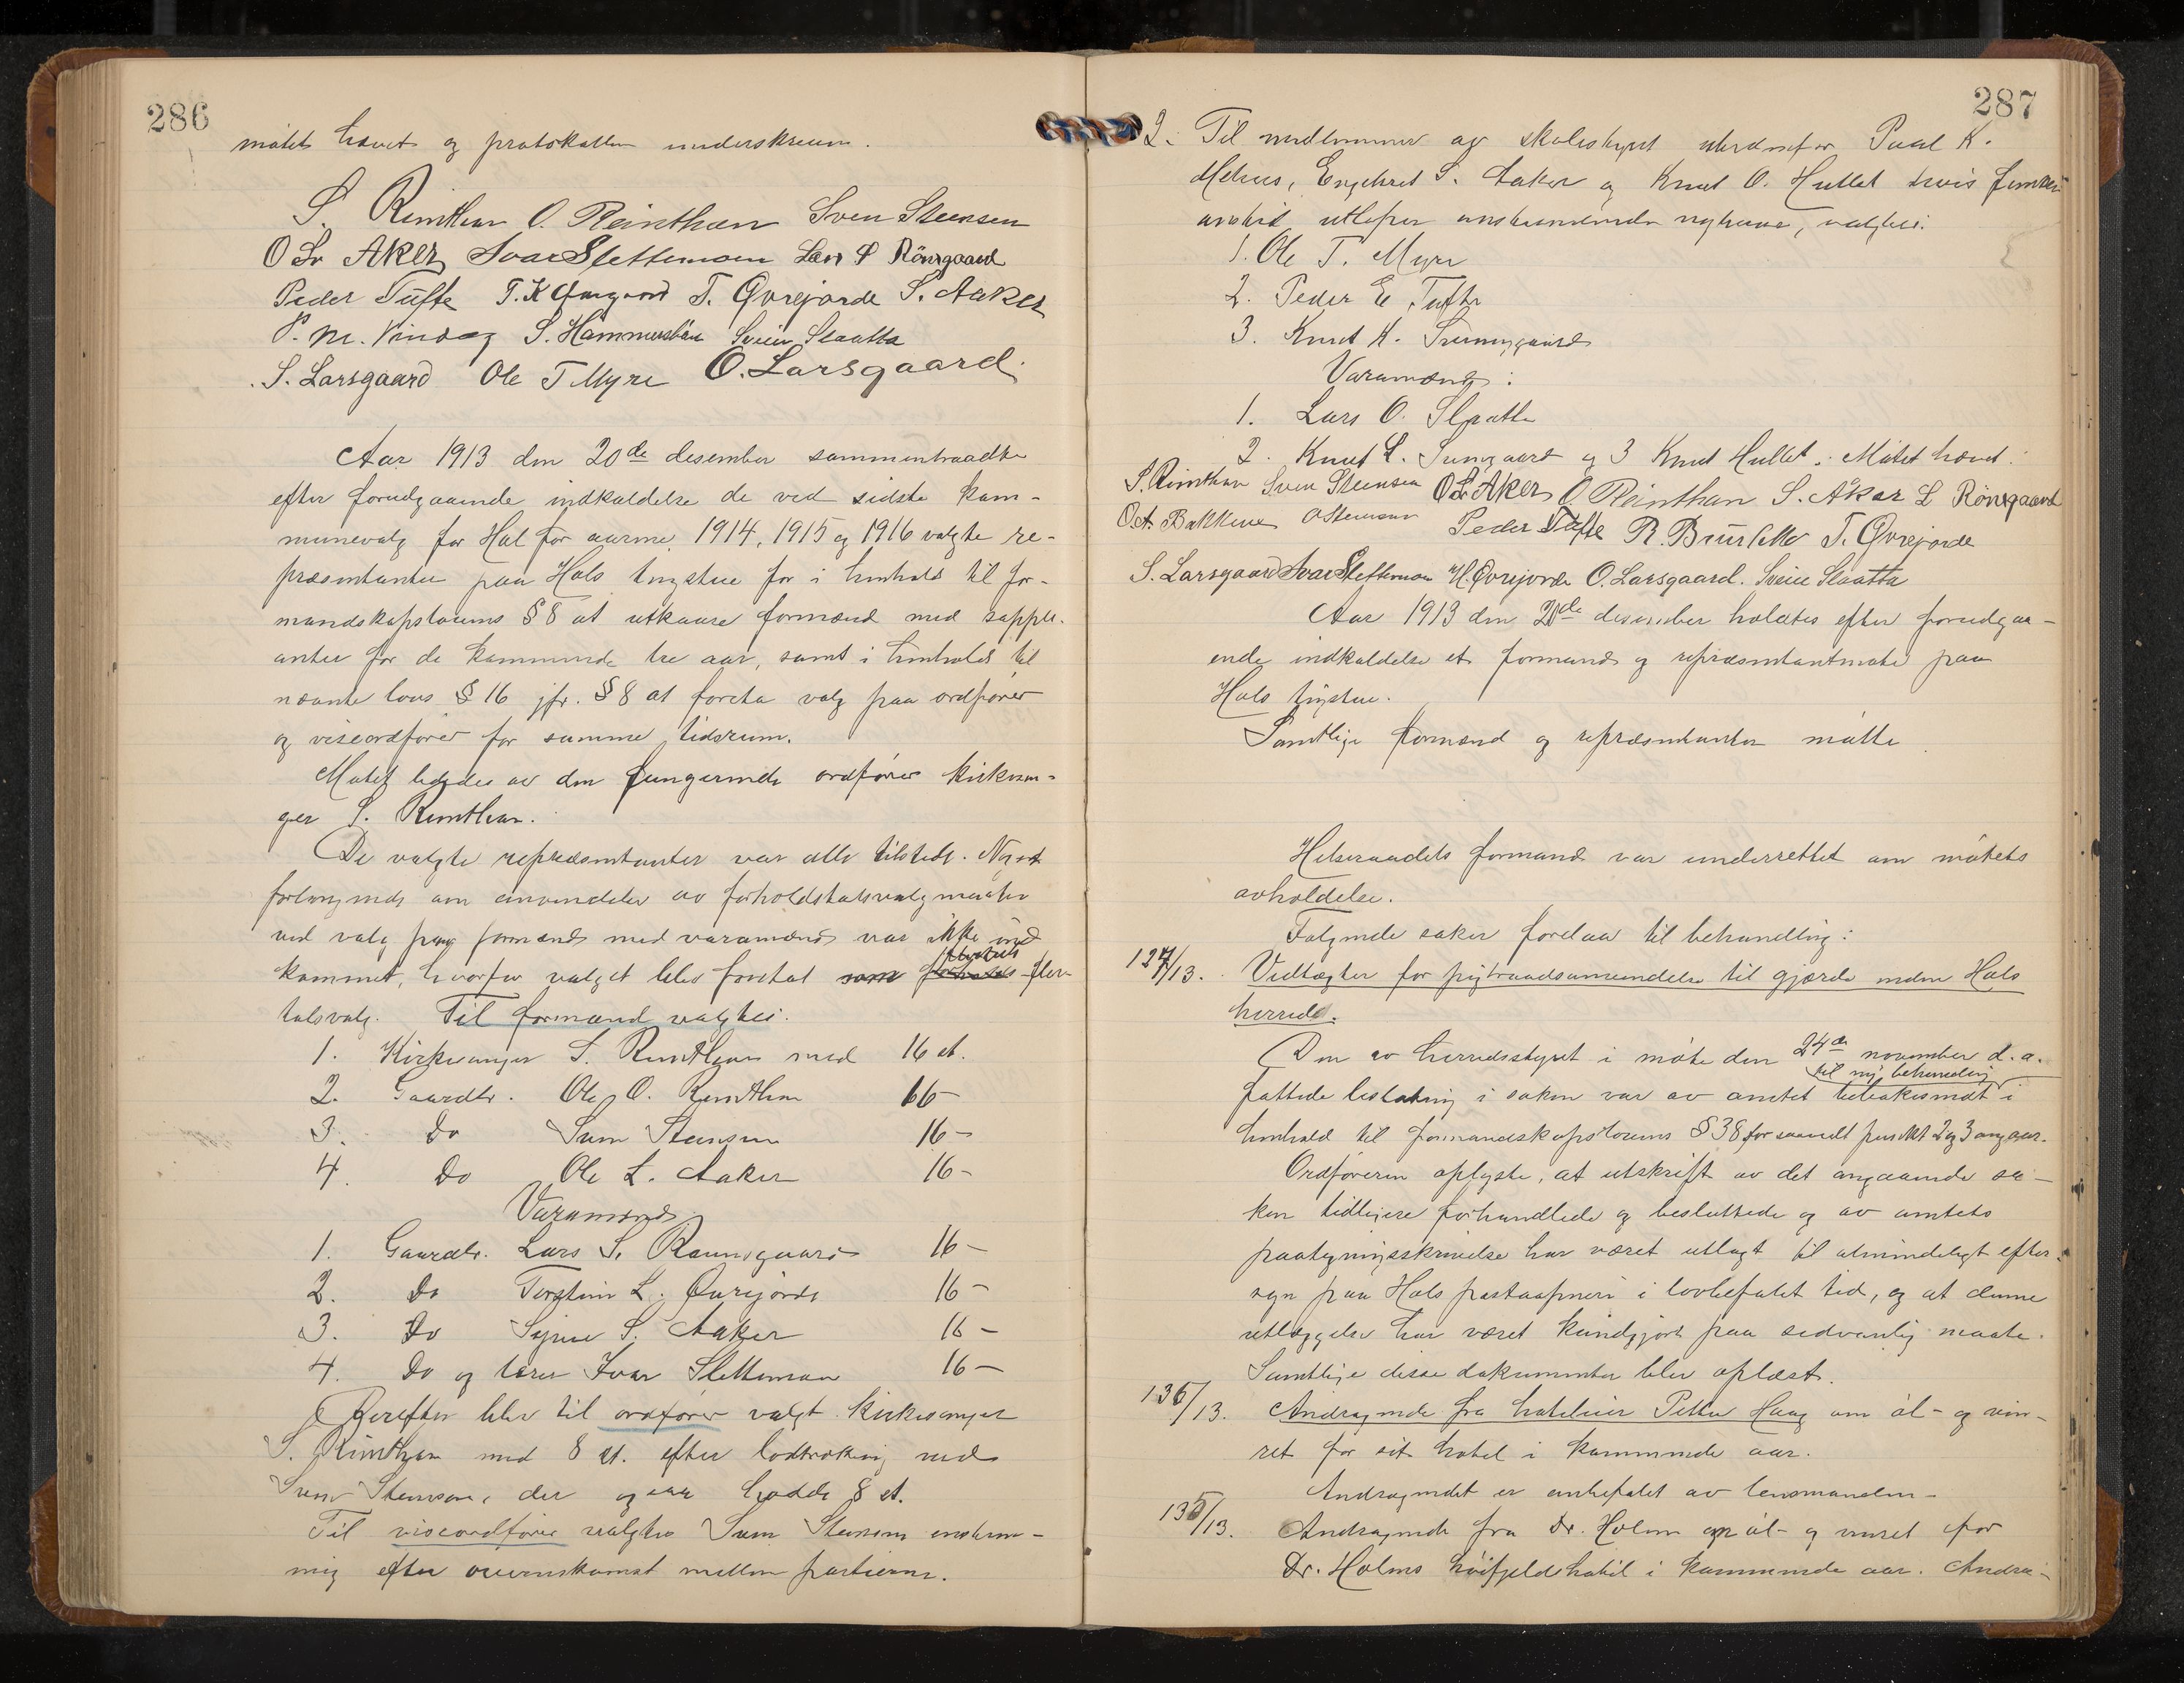 286
møtet hævet og protokollen underskreven.
S. Reinthon O. Reinthon Sven Steensen
O L Aker Ivar Slettemoen Lars S Rönsgaard
Peder Tufte T. K T. Øvrejorde S. Aaker
P. M. S. Hammersbøen Svein Slaatta
S. Larsgaard Ole T Myre O. Larsgaard.
Aar 1913 den 20de desember sammentraadte
efter forudgaaende indkaldelse de ved sidste kom-
munevalg for Hol for aarene 1914, 1915 og 1916 valgte re-
præsentanter paa Hols tingstue for i henhold til for-
mandskapslovens § 8 at utkaare formænd med supple-
anter for de kommende tre aar, samt i henhold til
nævnte lovs § 16 jfr. § 8 at foreta valg paa ordfører
og viseordfører for samme tidsrum.
Møtet lededes av den fungerende ordfører kirkesan-
ger S. Reinthon.
De valgte repræsentanter var alle tilstede. Noget
forlangende om anvendelse av forholdstalsvalgmaaten
ved valg paa formænd med varamænd var ikke ind-
kommet, hvorfor valget blev foretat som fler-
talsvalg. Til formænd valgtes:
1. Kirkesanger S. Reinthon med 16 st.
2. Gaardbr. Ole O. Reinthon 16 -
3. Do Sven Steensen 16 -
4. Do Ole L. Aaker 16 -
Varamænd
1. Gaardbr. Lars S. Rønsgaard 16 -
2. Do Torstein L. Øvrejorde 16 -
3. Do S. Aaker 16 -
4. Do og lærer Ivar Slettemoen 16 -
Derefter blev til ordfører valgt kirkesanger
S. Reinthon med 8 st. efter lodtrækning med
Sven Steensen, der ogsaa hadde 8 st.
Til viseordfører valgtes Sven Steensen enstem-
mig efter overenskomst mellem partierne.
287
2. Til medlemmer av skolestyret istedenfor Paal K.
Mehus, Engebret S. Aaker og Knut O. Hullet hvis funksi-
onstid utløper anstundende nytaar, valgtes:
1. Ole T. Myre
2. Peder E Tufte
3. Knut K. Sunngaard
Varamænd:
1. Lars O. Slaatta
2. Knut L. Sunngaard og 3 Knut Hullet. Møtet hævet.
S. Reinthon Sven Steensen O L Aker O Reinthon S. Åker L Rönsgaard
O. A. Bakken Peder Tufte R. T. Øvrejorde
S. Larsgaard Ivar Slettemoen H. Øvrejorde O. Larsgaard. Svein Slaatta
Aar 1913 den 20de desember holdtes efter forudgaa-
ende indkaldelse et formands og repræsentantmøte paa
Hols tingstue.
Samtlige formænd og repræsentanter møtte.
Helseraadets formand var underrettet om møtets
avholdelse.
Følgende saker forelaa til behandling:
127/13. Vedtægter for pigtraadsanvendelse til gjærde inden Hols
herred.
Den av herredsstyret i møte den 24de november d.a.
til ny behandling
fattede beslutning i saken var av amtet tilbakesendt i
henhold til formandskapslovens § 38 forsaavidt punkt 2 og 3 angaar.
Ordføreren oplyste, at utskrift av det angaaende sa-
ken tidligere forhandlede og besluttede og av amtets
paategningsskrivelse har været utlagt til almindeligt efter-
syn paa Hols postaapneri i lovbefalet tid, og at denne
utlæggelse har været kundgjort paa sedvanlig maate.
Samtlige disse dokumenter blev oplæst.
136/13. Andragende fra hoteleier Petter Haag om øl- og vin-
ret for sit hotel i kommende aar.
Andragendet er anbefalet av lensmanden.
135/13. Andragende fra Dr. Holm om øl- og vinret for
Dr. Holms høifjeldshotel i kommende aar. Andra-